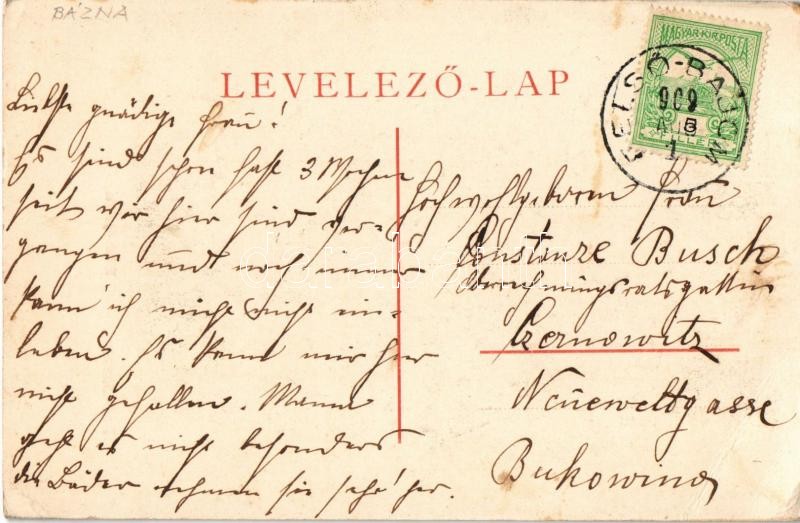 BÁZNA
LEVELEZŐ-LAP
MAGYAR KIR. POSTA
FELSŐ-BAJOM
909
AUG
1
B
Liebste gnädige Frau!
Es sind schon fast 3 Wochen
seit wir hier sind ver-
gangen und noch immer
kann ich mich nicht ein-
leben. Es kann mir hier
nicht gefallen. Mama
geht es nicht besonders
die Bäder nehmen sie sehr her.
Hochwohlgeboren Frau
Constanze Busch
Oberrechnungsratsgattin
Czernowitz
Neueweltgasse
Bukowina